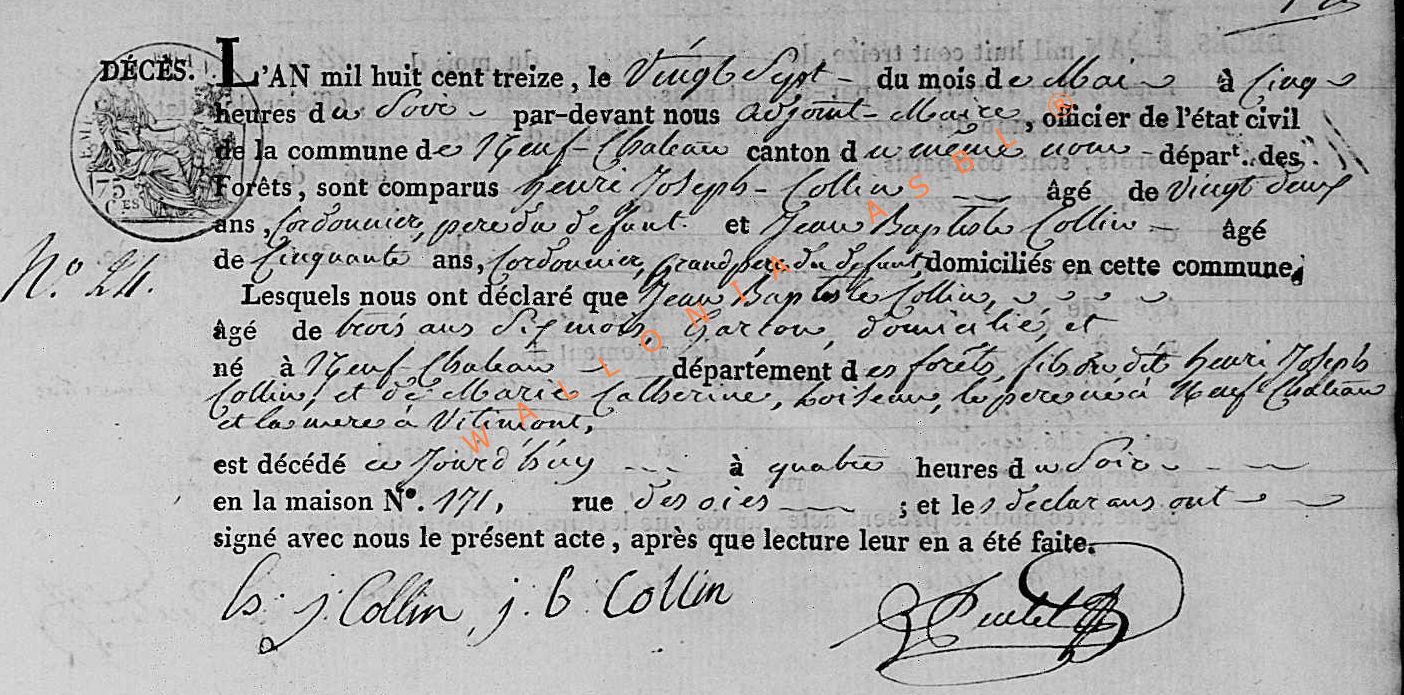 DÉCÈS. L'AN mil huit cent treize, le Vingt Sept - du mois de Mai à Cinq
heures du Soir par-devant nous adjoint-Maire, officier de l'état civil
de la commune de Neuf-Chateau canton du même nom - départ.t des
Forêts, sont comparus henri Joseph-Collin âgé de Vingt deux
ans, Cordonnier, pere du defunt. et Jean Baptiste Collin - âgé
de Cinquante ans, Cordonnier, grand pere du defunt, domiciliés en cette commune,
N.o 24.
Lesquels nous ont déclaré que Jean Baptiste Collin,
âgé de trois ans Six mois, Garcon, domicilié, et
né à Neuf-Chateau département des forêts, fils du dit henri Joseph
Collin, et de Marie Catherine, hoiseau, le pere né à Neuf Chateau
et la mere à Vitimont,
est décédé ce Jourd'huy à quatre heures du Soir
en la maison N.o 171, rue des oies ; et les declarans ont
signé avec nous le présent acte, après que lecture leur en a été faite.
h: j: Collin, j: b: Collin
WALLONIA ASBL ®